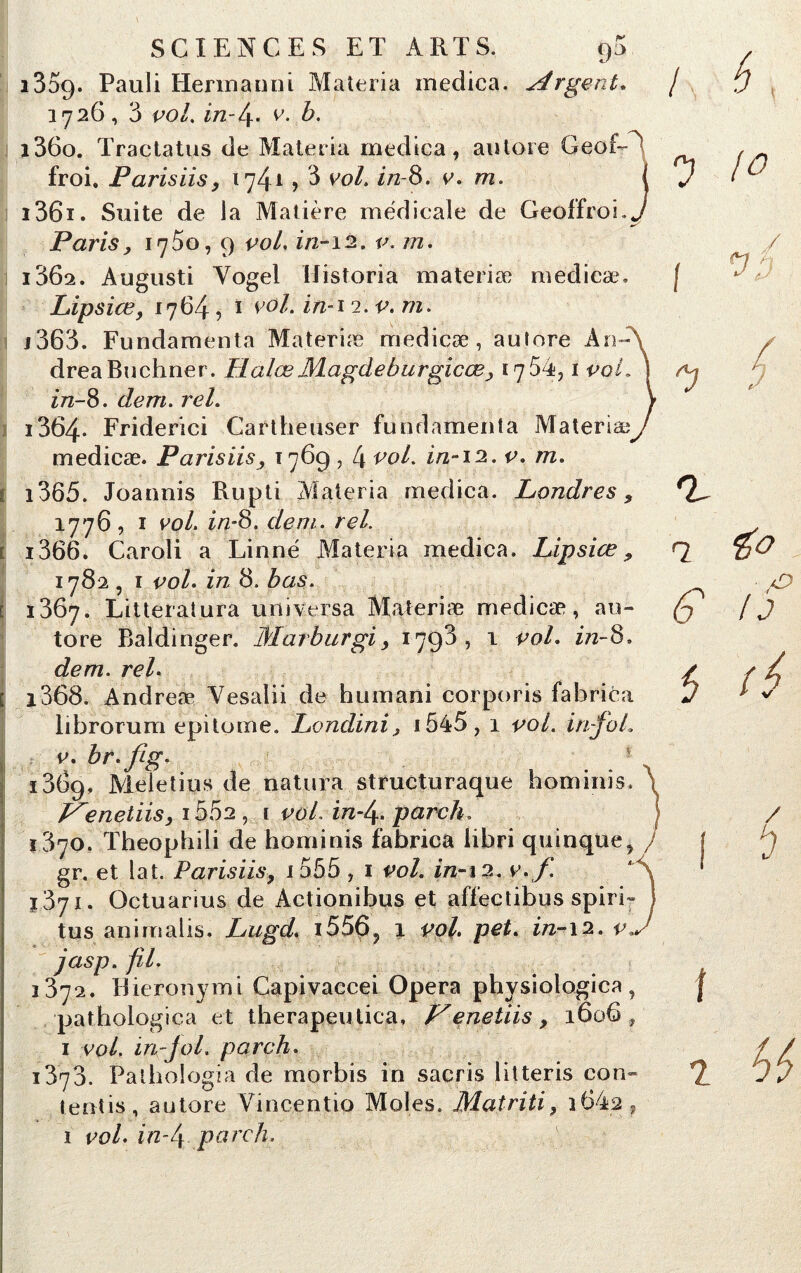 SCIENCES ET ARTS. 95
1359. Pauli Hermanni Materia medica. Argent. / 5
1726, 3 vol. in-4. v. b.
1360. Tractatus de Materia medica, autore Geof-
froi. Parisiis, 1741, 3 vol. in-8. v. m. 10
1361. Suite de la Matière médicale de Geoffroi.
Paris, 1750, 9 vol. in-12. v. m.
1362. Augusti Vogel Historia materiæ medicæ.
Lipsiæ, 1764, 1 vol. in-12. v. m.
1363. Fundamenta Materiæ medicæ, autore An-
drea Buchner. Halæ Magdeburgicæ, 1754, 1 vol.
in-8. dem. rel.
1364. Friderici Cartheuser fundamenta Materiæ
medicæ. Parisiis, 1769, 4 vol. in-12. v. m.
1365. Joannis Rupti Materia medica. Londres, 2
1776, 1 vol. in-8. dem. rel.
1366. Caroli a Linné Materia medica. Lipsiæ, 2 80
1782, 1 vol. in 8. bas.
1367. Litteratura universa Materiæ medicæ, au- 6
tore Baldinger. Marburgi, 1793, 1 vol. in-8.
dem. rel.
1368. Andreæ Vesalii de humani corporis fabrica 5 15
librorum epitome. Londini, 1545, 1 vol. in-fol.
v. br. fig.
1369. Meletius de natura structuraque hominis.
Venetiis, 1552, 1 vol. in-4. parch.
1370. Theophili de hominis fabrica libri quinque, 1 5
gr. et lat. Parisiis, 1555, 1 vol. in-12. v. f.
1371. Octuarius de Actionibus et affectibus spiri-
tus animalis. Lugd. 1556, 1 vol. pet. in-12. v.
jasp. fil.
1372. Hieronymi Capivaccei Opera physiologica, 1
pathologica et therapeutica. Venetiis, 1606,
1 vol. in-fol. parch.
1373. Pathologia de morbis in sacris litteris con- 2 55
tentis, autore Vincentio Moles. Matriti, 1642,
1 vol. in-4 parch.